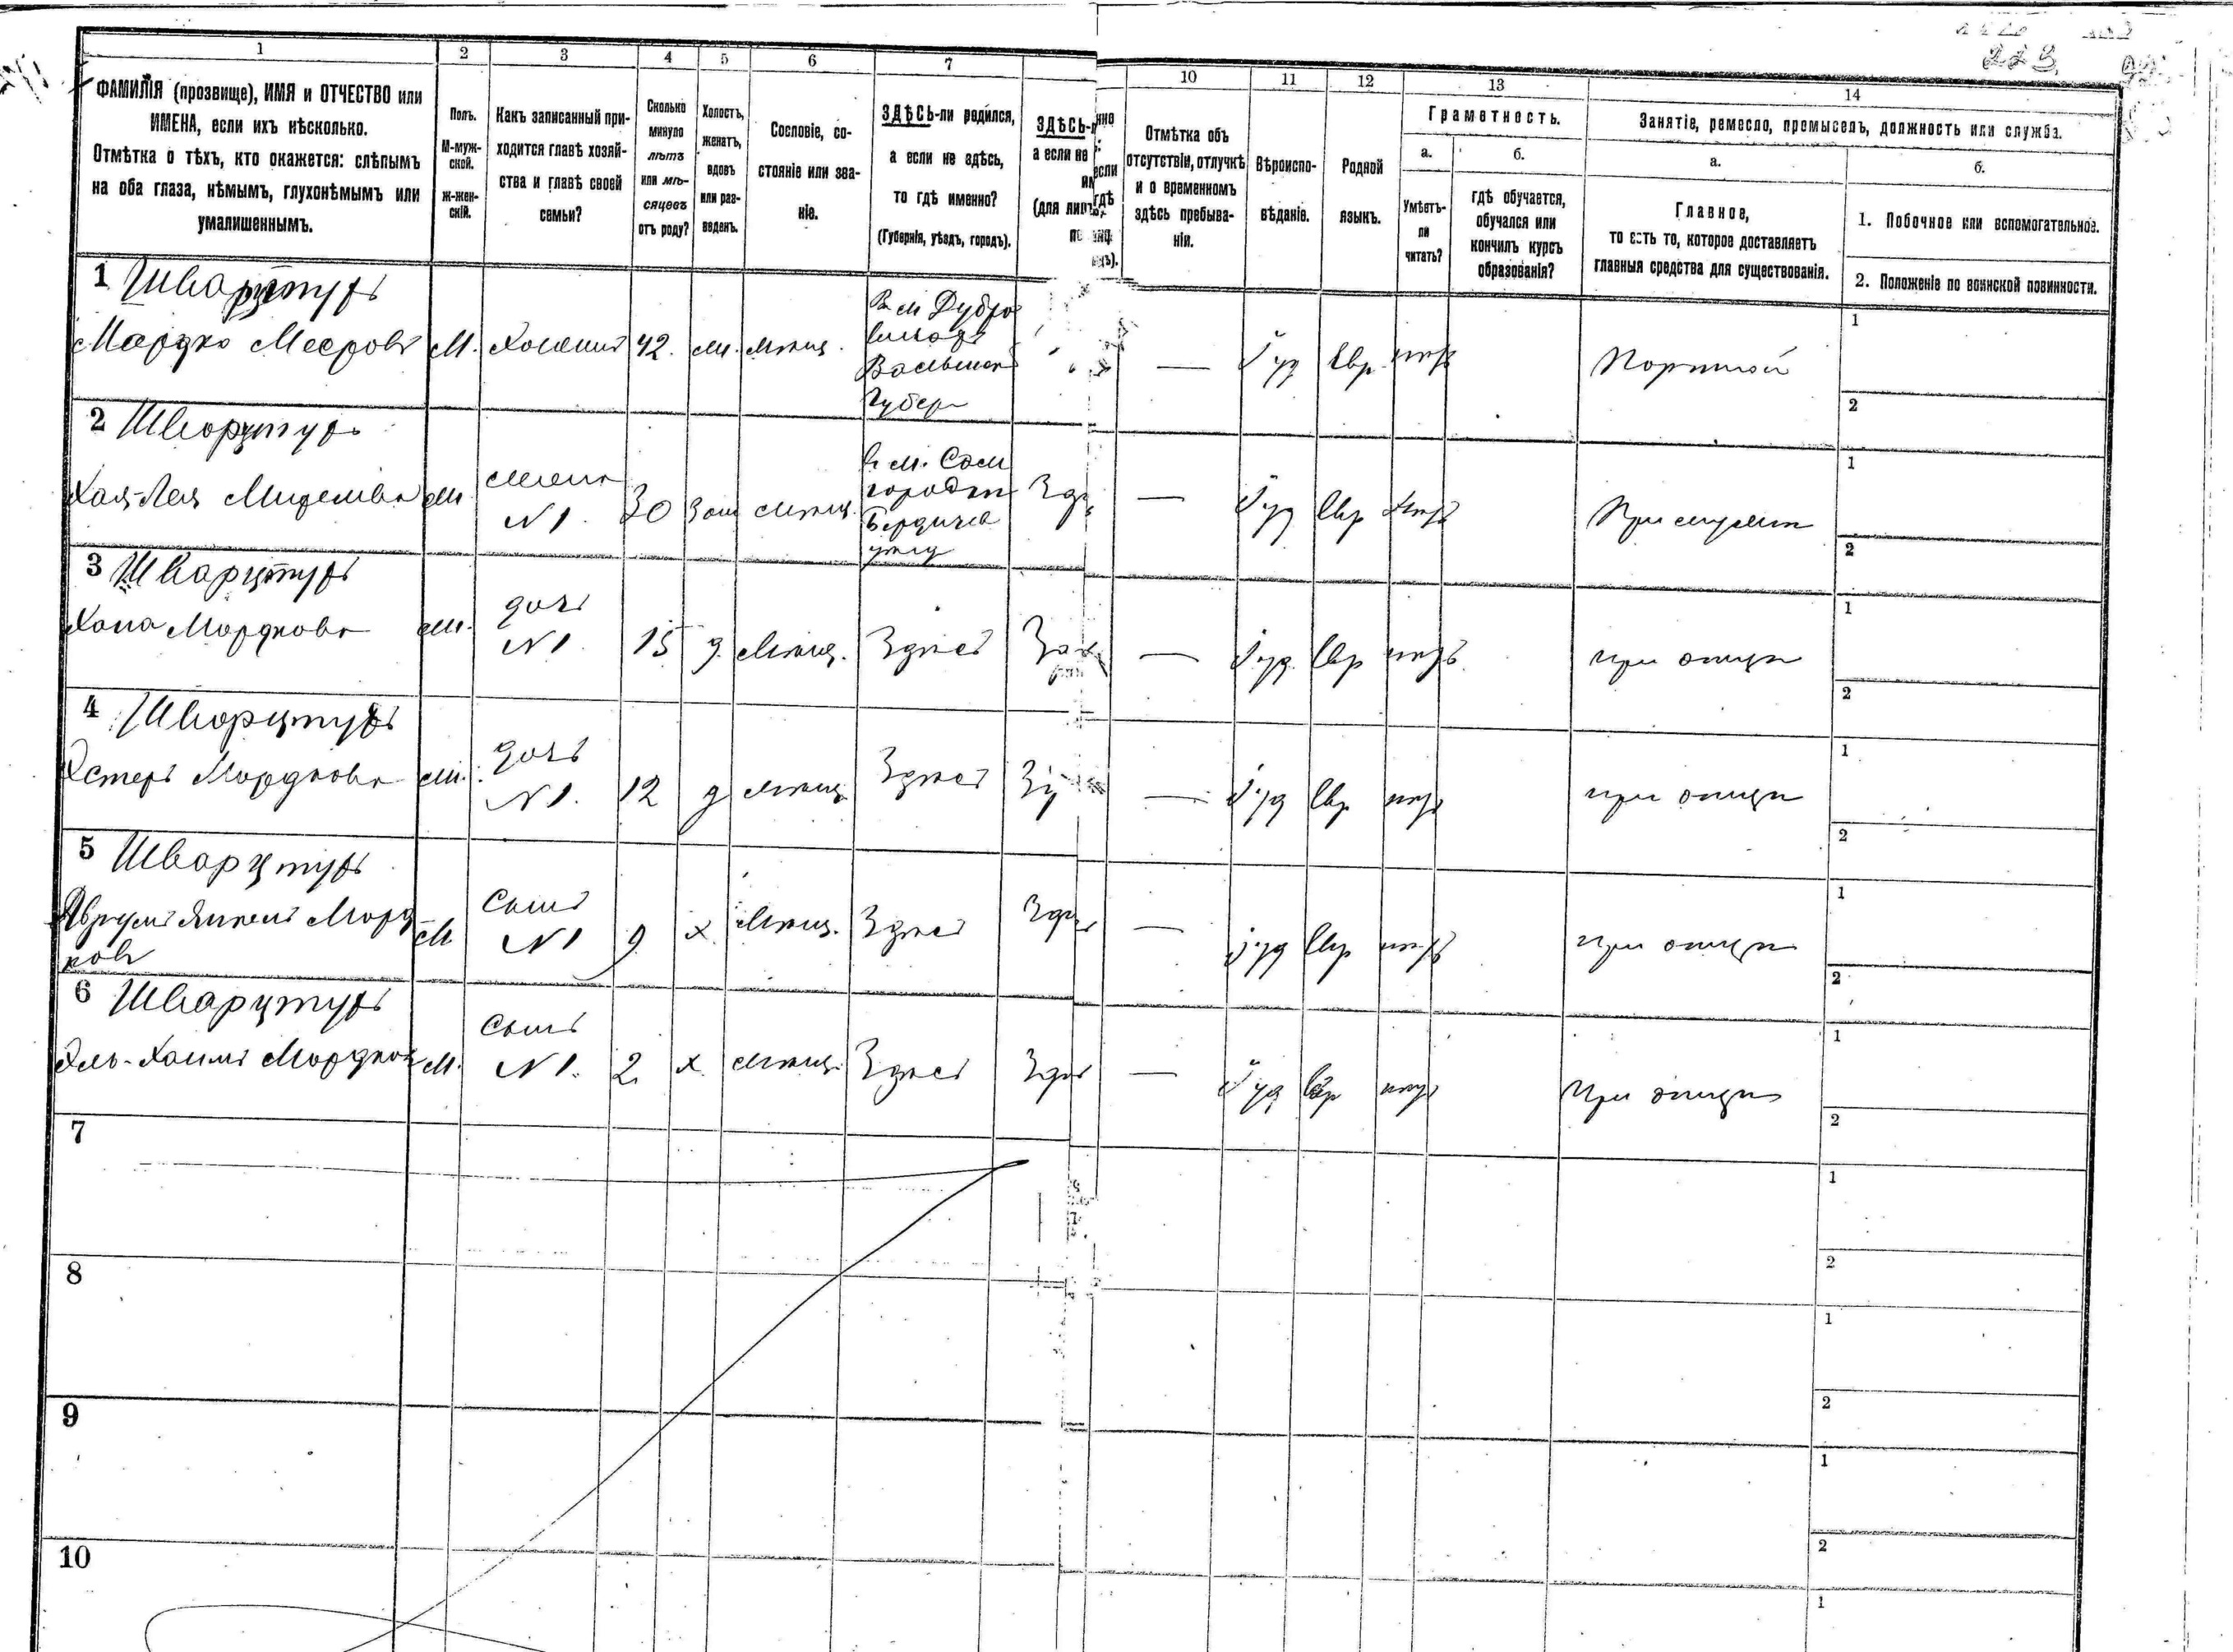 1 2 3 4 5 6 7 10 11 12 13 14
ФАМИЛІЯ (прозвище), ИМЯ и ОТЧЕСТВО или
ИМЕНА, если ихъ нѣсколько.
Отмѣтка о тѣхъ, кто окажется: слѣпымъ
на оба глаза, нѣмымъ, глухонѣмымъ или
умалишеннымъ.
Полъ.
М-муж-
ской.
Ж-жен-
скій.
Какъ записанный при-
ходится главѣ хозяй-
ства и главѣ своей
семьи?
Сколько
минуло
лѣтъ
или мѣ-
сяцевъ
отъ роду?
Холостъ,
женатъ,
вдовъ
или раз-
веденъ.
Сословіе, со-
стояніе или зва-
ніе.
ЗДѢСЬ-ли родился,
а если не здѣсь,
то гдѣ именно?
(Губернія, уѣздъ, городъ).
ЗДѢСЬ-
а если не
Отмѣтка объ
отсутствіи, отлучкѣ
и о временномъ
здѣсь пребыва-
ніи.
Вѣроиспо-
вѣданіе.
Родной
языкъ.
Грамотность.
а.
Умѣетъ-
ли
читать?
б.
гдѣ обучается,
обучался или
кончилъ курсъ
образованія?
Занятіе, ремесло, промыселъ, должность или служба.
а.
Главное,
то есть то, которое доставляетъ
главныя средства для существованія.
б.
1. Побочное или вспомогательное.
2. Положеніе по воинской повинности.
1 Шварцтухъ
Мордко Мееровъ М. Хозяинъ 42. мѣщ. — Іуд Евр. нѣтъ Портной
Губер
1
2
2 Шварцтухъ
Хая-Лея жена №1. 30 Зам мѣщ. — Іуд Евр нѣтъ При мужѣ
Бердичев
уѣзд
1
2
3 Шварцтухъ
Хана Мордкова дочь №1. 15 д. мѣщ. Здѣсь — Іуд. Евр нѣтъ при отцѣ
1
2
4 Шварцтухъ
Эстеръ Мордкова дочь №1. 12 д мѣщ Здѣсь — Іуд Евр нѣтъ при отцѣ
1
2
5 Шварцтухъ
Аврумъ Морд
ковъ М сынъ №1 9 х мѣщ. Здѣсь — Іуд Евр нѣтъ при отцѣ
1
2
6 Шварцтухъ
Эль-Хаимъ Мордков М. сынъ №1. 2 х. мѣщ. Здѣсь — Іуд Евр нѣтъ При отцѣ
1
2
7
1
2
8
1
2
9
1
2
10
1